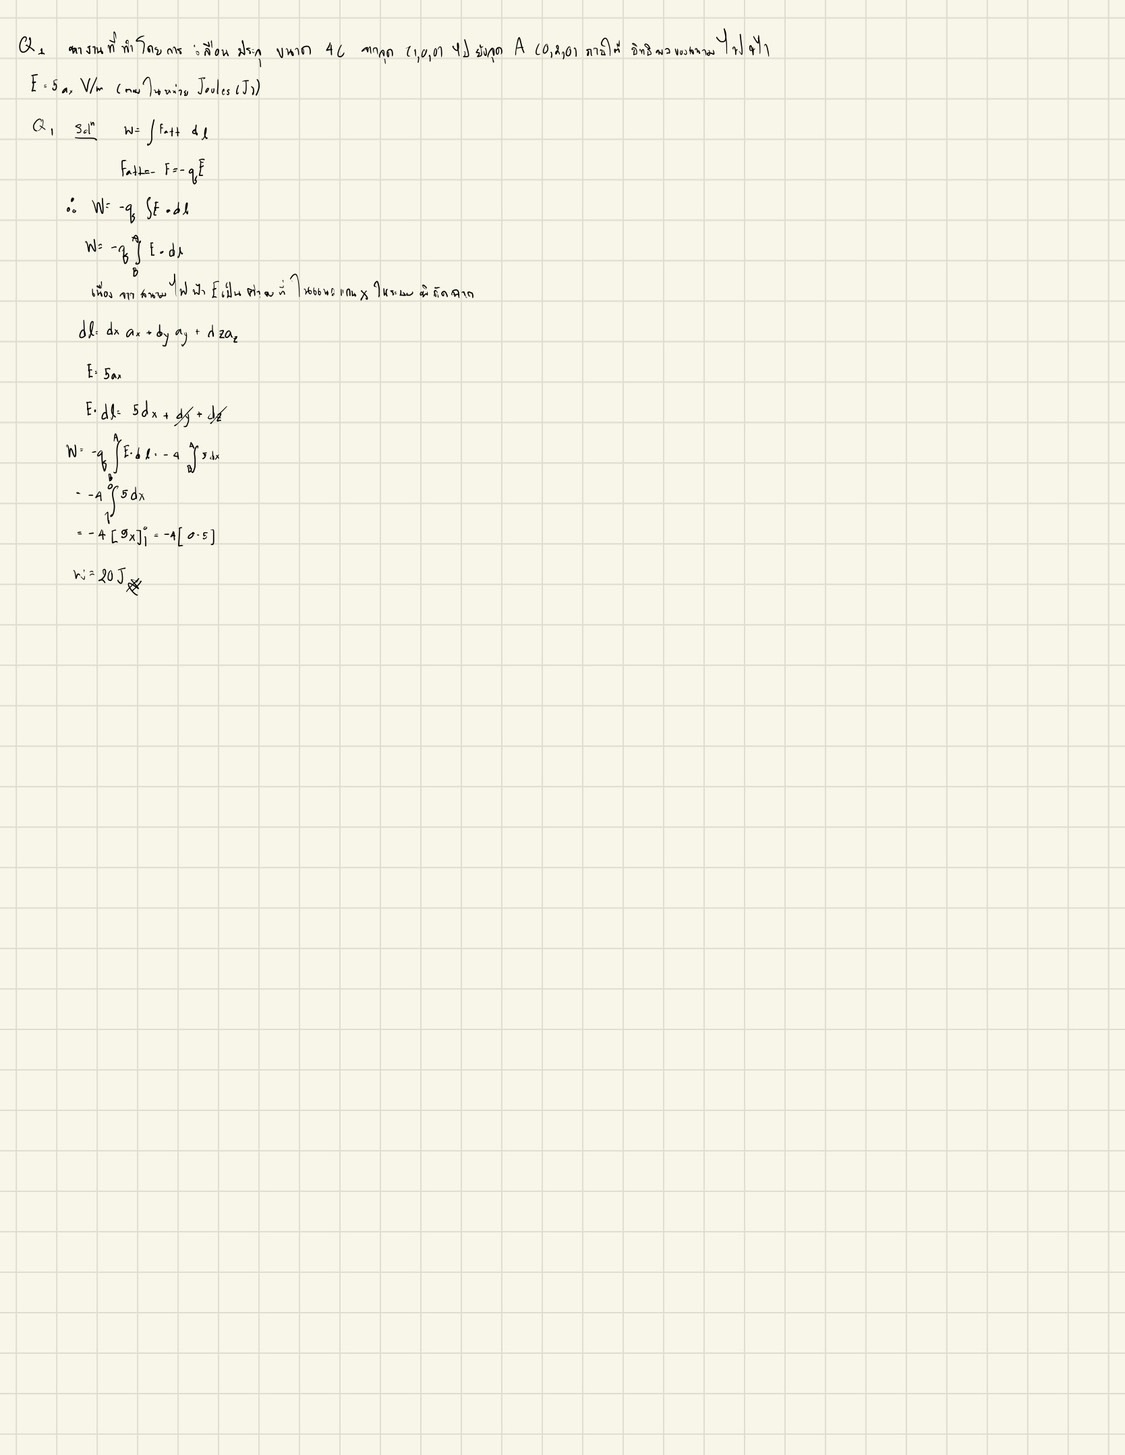 Q1 หางานที่ทำโดยการเลื่อนประจุ ขนาด 4C จากจุด (1,0,0) ไปยังจุด A (0,2,0) ภายใต้ อิทธิพลของสนามไฟฟ้า
E = 5ax V/m (ตอบในหน่วย Joules (J))
Q1 Solⁿ W = ∫ Fatt dl
F = -qE
∴ W = -q ∫E • dl
W = -q ∫ᴮᴬ E • dl
เนื่องจากสนามไฟฟ้า E เป็น ที่ ในแนวแกน x ในระบบพิกัดฉาก
dl = dx ax + dy ay + dz az
E = 5ax
E • dl = 5dx + dy + dz
W = -q ∫ᴮᴬ E • dl = -4 ∫ᴮᴬ 5 dx
= -4 ∫₁⁰ 5 dx
= -4 [5x]₁⁰ = -4[0-5]
W = 20 J